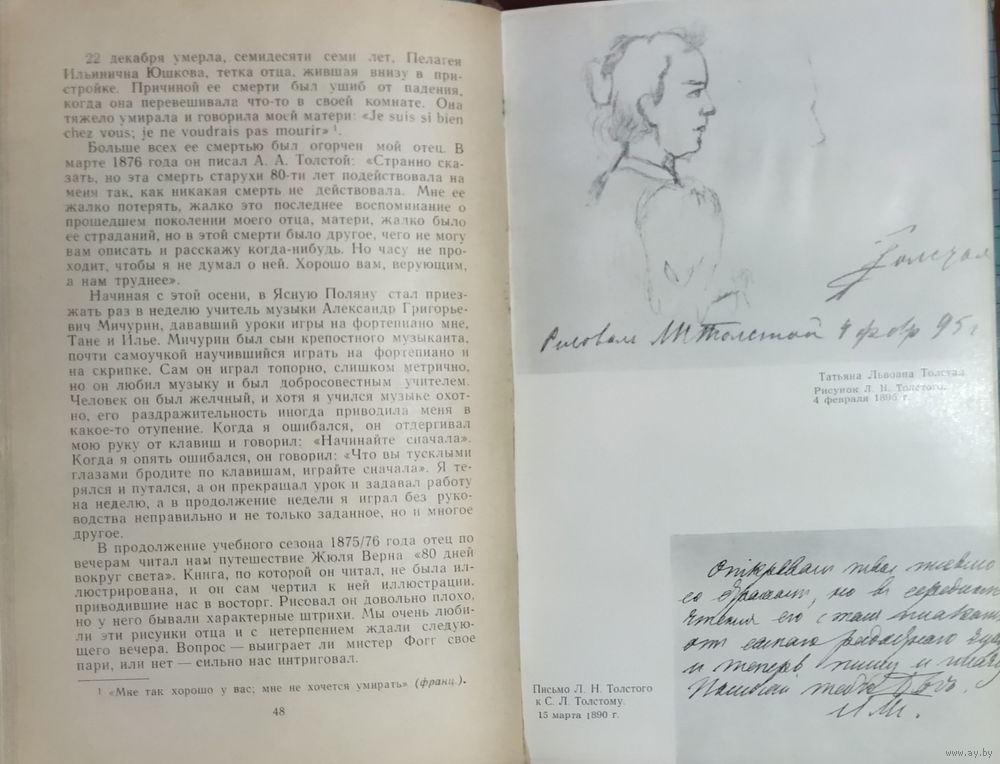 22 декабря умерла, семидесяти семи лет, Пелагея
Ильинична Юшкова, тетка отца, жившая внизу в при-
стройке. Причиной ее смерти был ушиб от падения,
когда она перевешивала что-то в своей комнате. Она
тяжело умирала и говорила моей матери: «Je suis si bien
chez vous; je ne voudrais pas mourir» ¹.
Больше всех ее смертью был огорчен мой отец. В
марте 1876 года он писал А. А. Толстой: «Странно ска-
зать, но эта смерть старухи 80-ти лет подействовала на
меня так, как никакая смерть не действовала. Мне ее
жалко потерять, жалко это последнее воспоминание о
прошедшем поколении моего отца, матери, жалко было
ее страданий, но в этой смерти было другое, чего не могу
вам описать и расскажу когда-нибудь. Но часу не про-
ходит, чтобы я не думал о ней. Хорошо вам, верующим,
а нам труднее».
Начиная с этой осени, в Ясную Поляну стал приез-
жать раз в неделю учитель музыки Александр Григорье-
вич Мичурин, дававший уроки игры на фортепиано мне,
Тане и Илье. Мичурин был сын крепостного музыканта,
почти самоучкой научившийся играть на фортепиано и
на скрипке. Сам он играл топорно, слишком метрично,
но он любил музыку и был добросовестным учителем.
Человек он был желчный, и хотя я учился музыке охот-
но, его раздражительность иногда приводила меня в
какое-то отупение. Когда я ошибался, он отдергивал
мою руку от клавиш и говорил: «Начинайте сначала».
Когда я опять ошибался, он говорил: «Что вы тусклыми
глазами бродите по клавишам, играйте сначала». Я те-
рялся и путался, а он прекращал урок и задавал работу
на неделю, а в продолжение недели я играл без руко-
водства неправильно и не только заданное, но и многое
другое.
В продолжение учебного сезона 1875/76 года отец по
вечерам читал нам путешествие Жюля Верна «80 дней
вокруг света». Книга, по которой он читал, не была ил-
люстрирована, и он сам чертил к ней иллюстрации,
приводившие нас в восторг. Рисовал он довольно плохо,
но у него бывали характерные штрихи. Мы очень люби-
ли эти рисунки отца и с нетерпением ждали следую-
щего вечера. Вопрос — выиграет ли мистер Фогг свое
пари, или нет — сильно нас интриговал.
¹ «Мне так хорошо у вас; мне не хочется умирать» (франц.).
48
Рисовал Толстой 4 февр 95 г
Татьяна Львовна Толстая.
Рисунок Л. Н. Толстого.
4 февраля 1895 г.
твое письмо
со но в середине
чтения его, с
от самого радостного
и теперь пишу и
Письмо Л. Н. Толстого
к С. Л. Толстому.
15 марта 1890 г.
www.ay.by